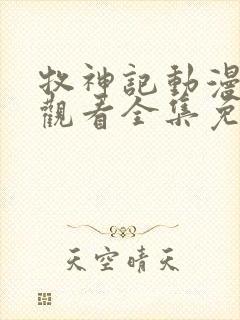 牧神記動漫
觀看全集免
天空晴天